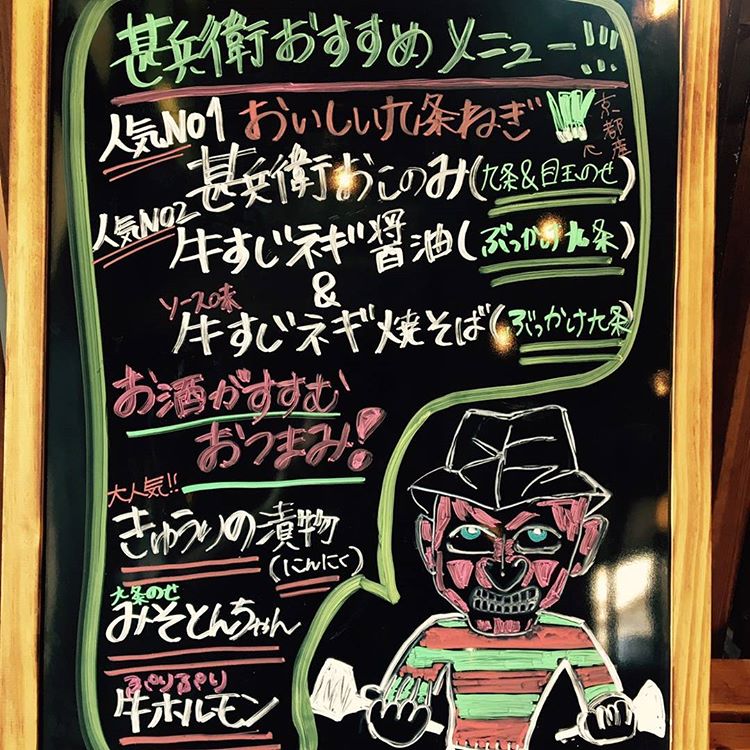 甚兵衛おすすめメニュー!!!
人気NO1 おいしい九条ねぎ 京都産
甚兵衛おこのみ(九条&目玉のせ)
人気NO2
牛すじネギ醤油(ぶっかけ九条)
&
ソース味
牛すじネギ焼そば(ぶっかけ九条)
お酒がすすむ
おつまみ!
大人気!!
きゅうりの漬物
(にんにく)
九条のせ
みそとんちゃん
ぷりぷり
牛ホルモン